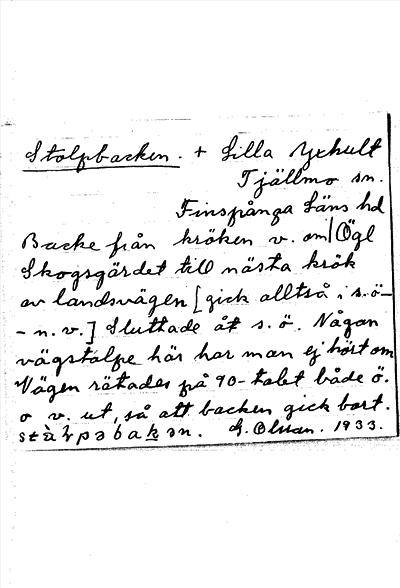 Stolpbacken. + Lilla Yxhult
Tjällmo sn.
Finspånga Läns hd
Backe från kröken v. om | Ögl
Skogsgärdet till nästa krök
av landsvägen [gick alltså i s.ö-
- n.v.] Sluttade åt s.ö. Någon
vägstolpe här har man ej hört om
Vägen rätades på 90-talet både ö.
o v. ut, så att backen gick bort.
G. Olsson. 1933.